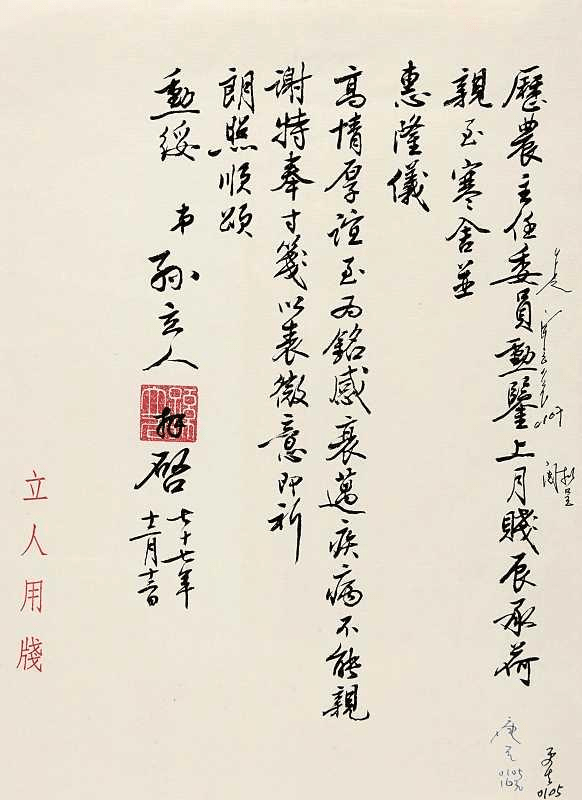 歷農主任委員勳鑒上月賤辰承荷
親至寒舍並
惠隆儀
高情厚誼至為銘感衰邁疾病不能親
謝特奉寸箋以表微意即祈
朗照順頌
勳綏
弟孫立人拜啓
七十七年
十二月十二日
立人用牋
擬呈
閱
0107
0105
0105